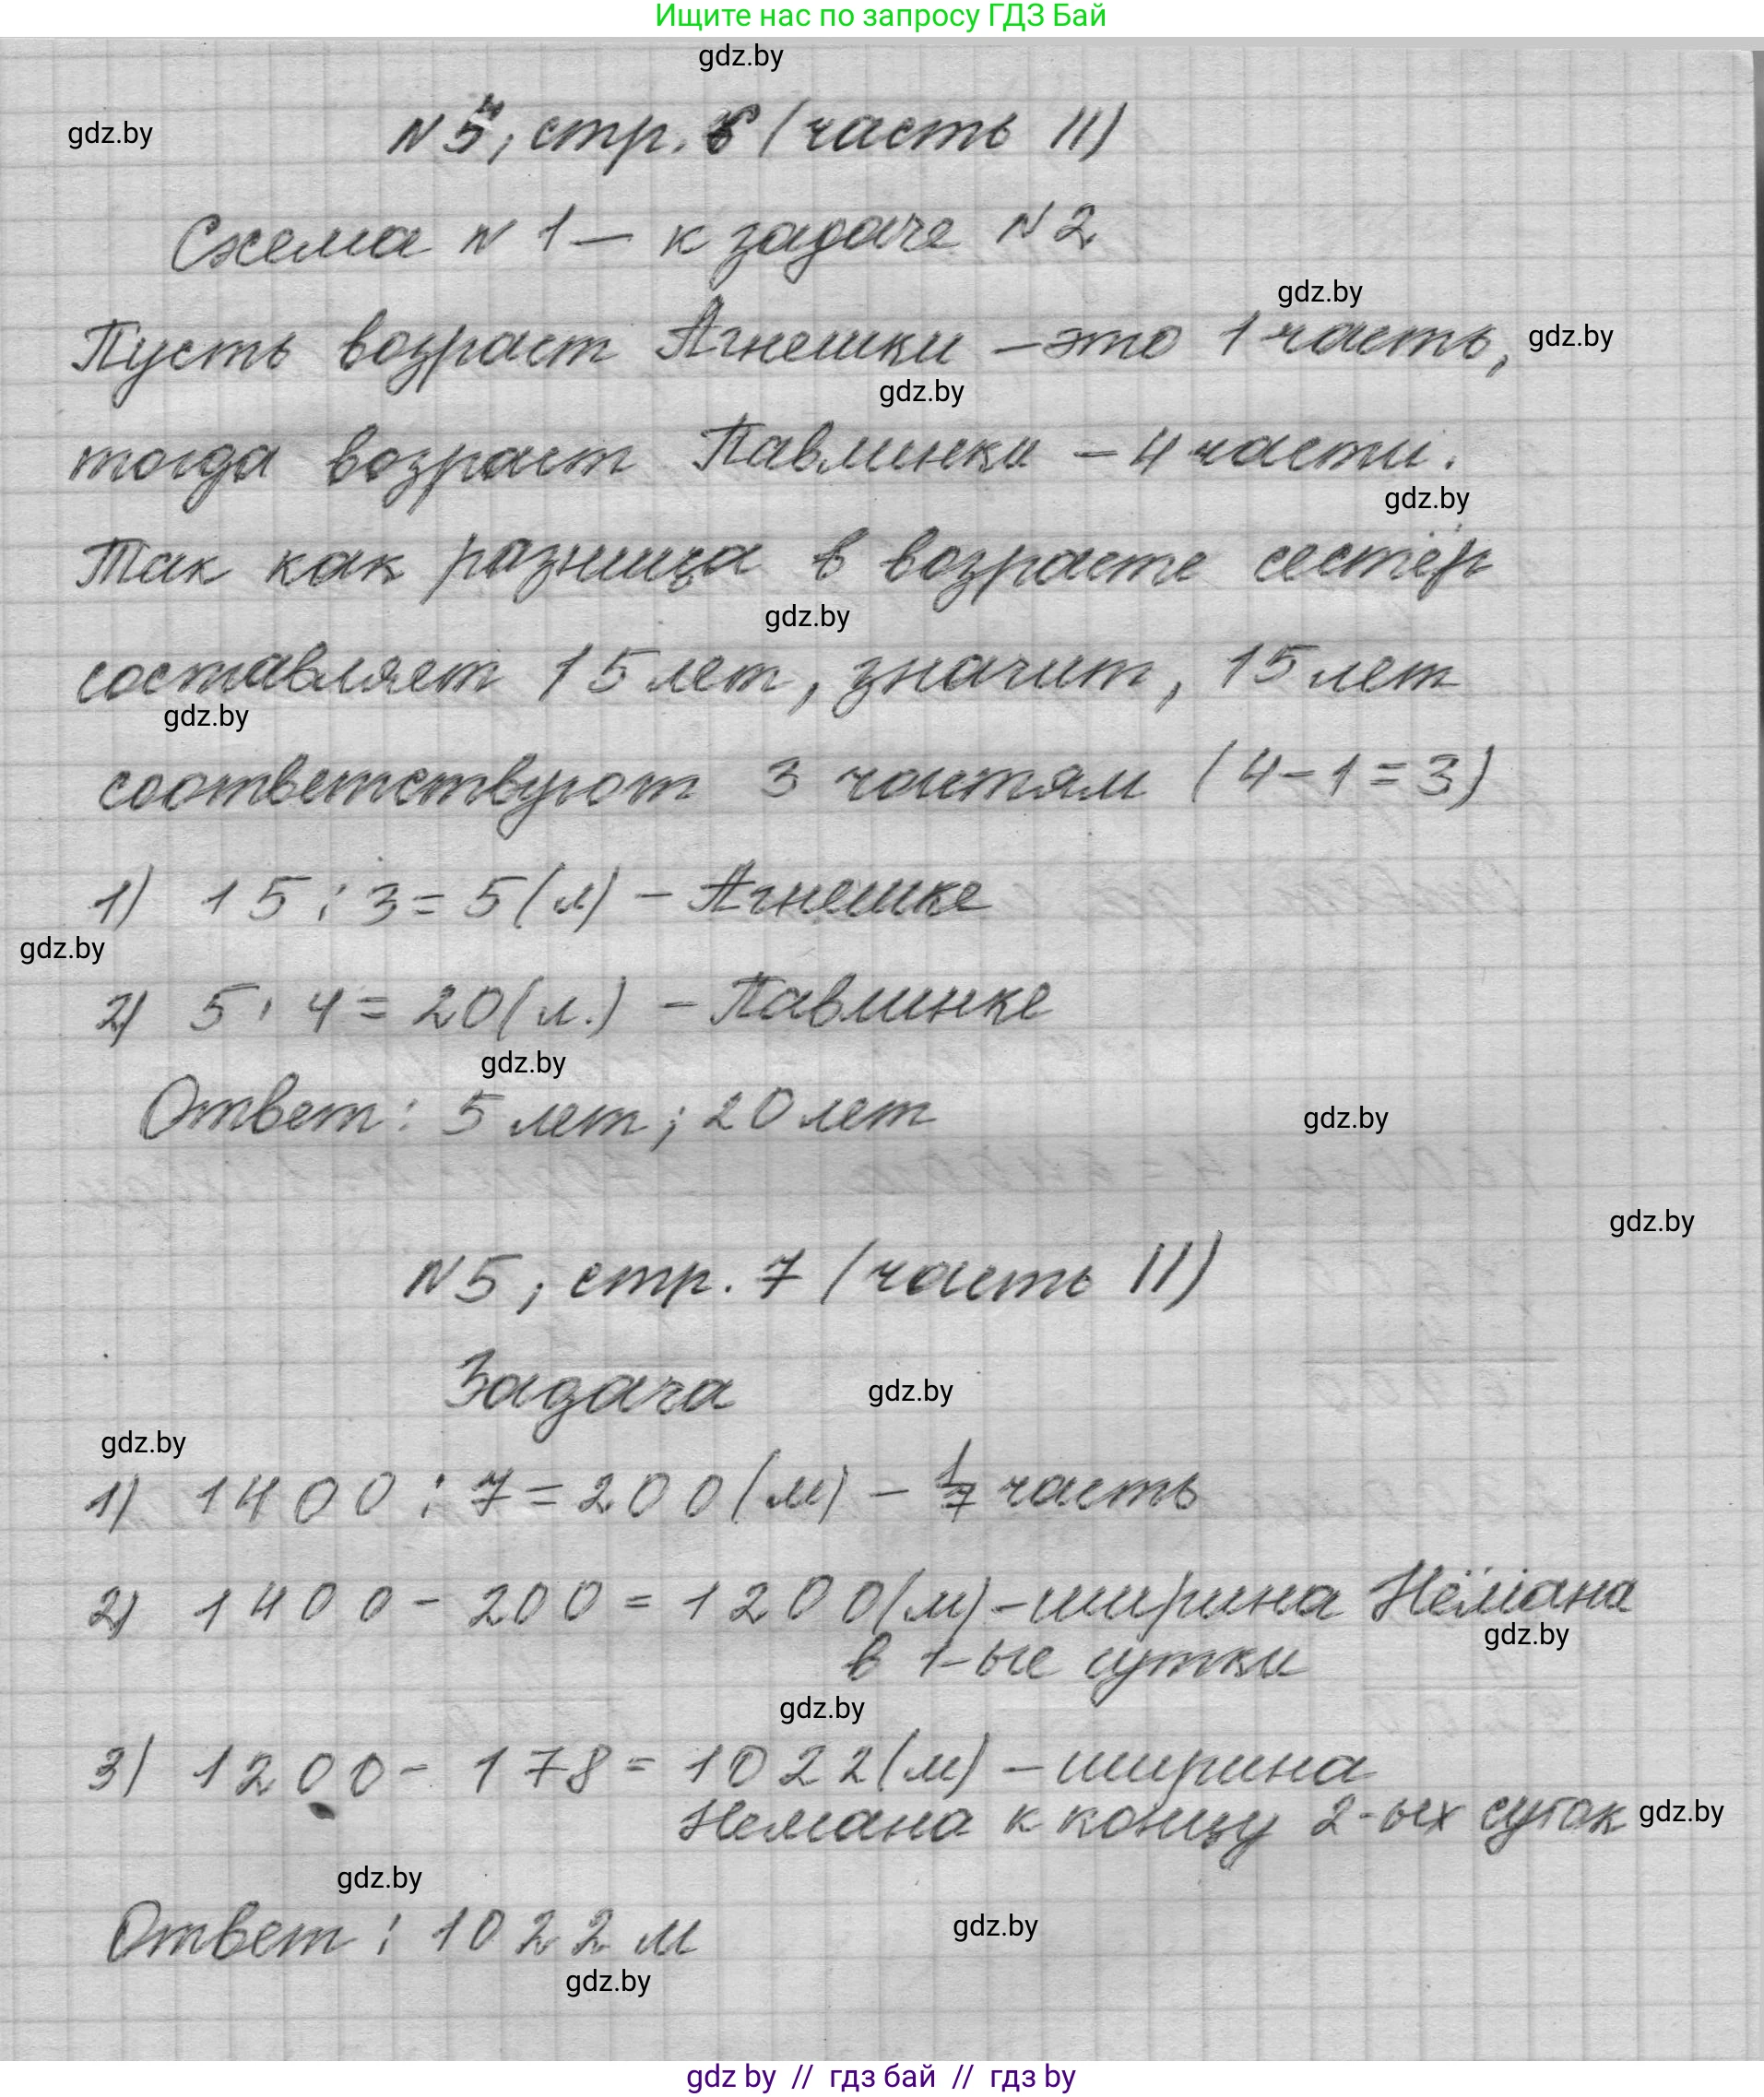 Ищите нас по запросу ГДЗ Бай
gdz.by
gdz.by
стр. (часть II)
Схема N 1 — к задаче N 2
gdz.by
Пусть возраст Агнешки – это 1 часть,
gdz.by
gdz.by
тогда возраст Павлинки – 4 части.
gdz.by
Так как разница в возрасте сестёр
gdz.by
составляет 15 лет, значит, 15 лет
gdz.by
соответствуют 3 частям (4-1=3)
1) 15 : 3 = 5 (л) – Агнешке
gdz.by
2) 5 · 4 = 20 (л.) – Павлинке
gdz.by
Ответ: 5 лет; 20 лет
gdz.by
gdz.by
N5, стр. 7 (часть II)
Задача
gdz.by
gdz.by
1) 1400 : 7 = 200 (м) – 1/7 часть
2) 1400 - 200 = 1200 (м) – ширина Нёмана
gdz.by
в 1-ые сутки
gdz.by
3) 1200 - 178 = 1022 (м) – ширина
Немана к концу 2-ых суток
gdz.by
gdz.by
Ответ: 1022 м
gdz.by
gdz.by
gdz by // гдз бай // гдз by